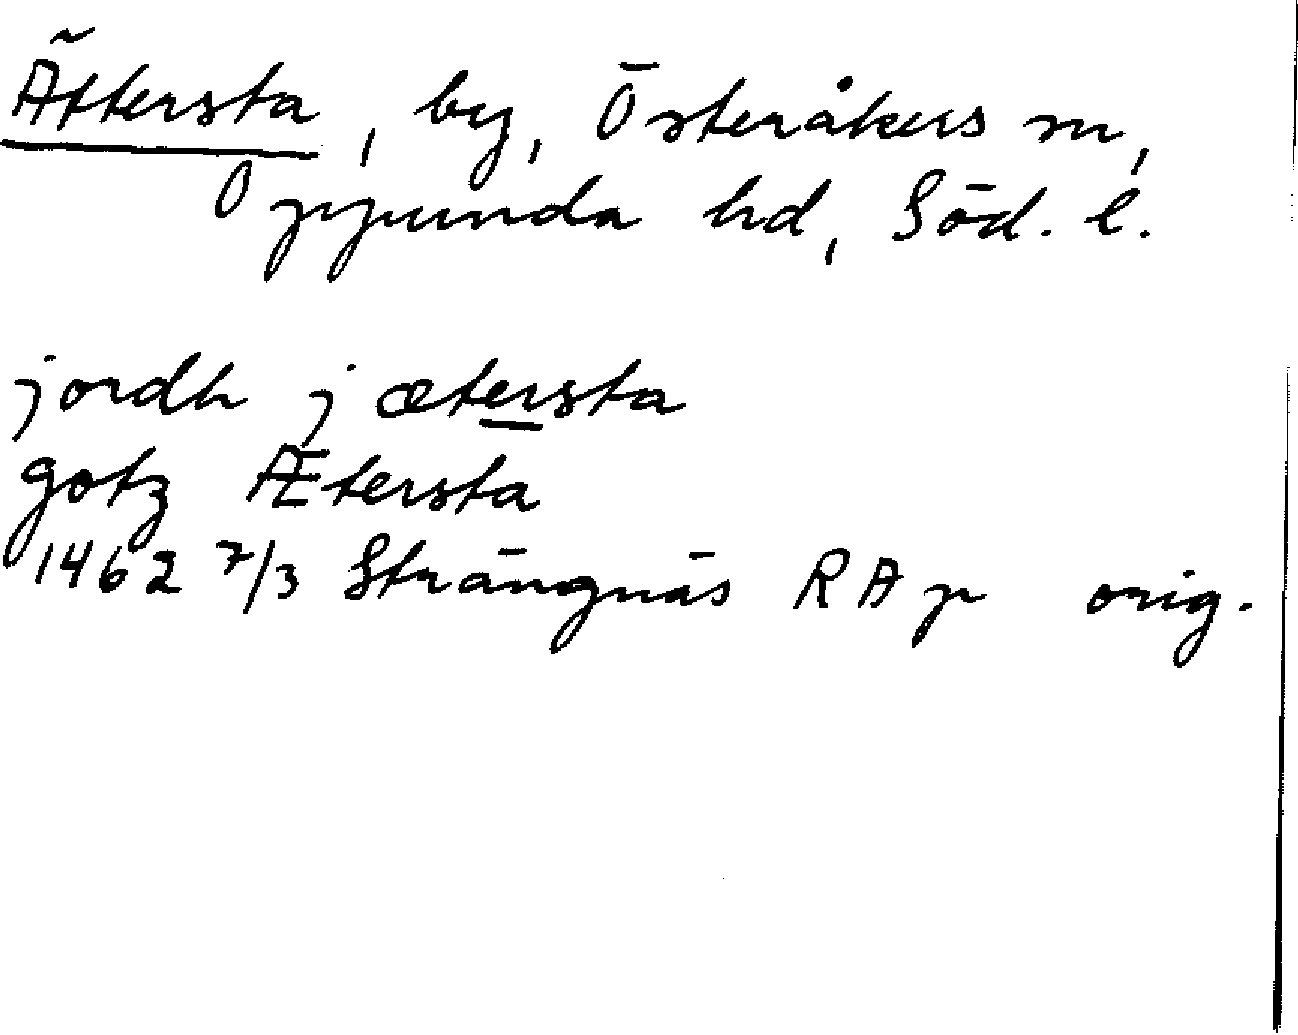 Ättersta, by, Österåkers sn,
Oppunda hd, Söd. l.
jordh j ætersta
gotz Ætersta
1462 7/3 Strängnäs RAp orig.